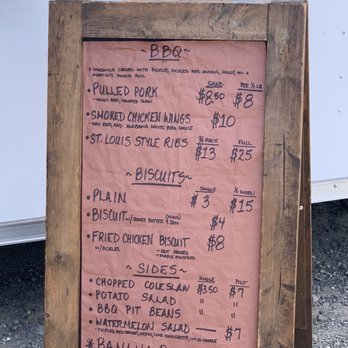 ~ BBQ ~
* SANDWICH SERVED WITH PICKLES, PICKLED RED ONIONS, SAUCE, ON A
MARTIN'S POTATO ROLL
SAND. PER ½ LB.
• PULLED PORK $8.50 $8
- TANGY BBQ, CHOPPED SLAW
• SMOKED CHICKEN WINGS $10
- DRY RUB, AND ALABAMA WHITE BBQ SAUCE
½ RACK FULL
• ST. LOUIS STYLE RIBS $13 $25
~ BISCUITS ~
SINGLE ½ DOZEN
• PLAIN $3 $15
• BISCUIT W/ HONEY BUTTER & JAM $4
• FRIED CHICKEN BISCUIT $8
W/ PICKLES - HOT HONEY
- MAPLE MUSTARD
~ SIDES ~
SINGLE PINT
• CHOPPED COLESLAW $3.50 $7
• POTATO SALAD " "
• BBQ PIT BEANS " "
• WATERMELON SALAD — $7